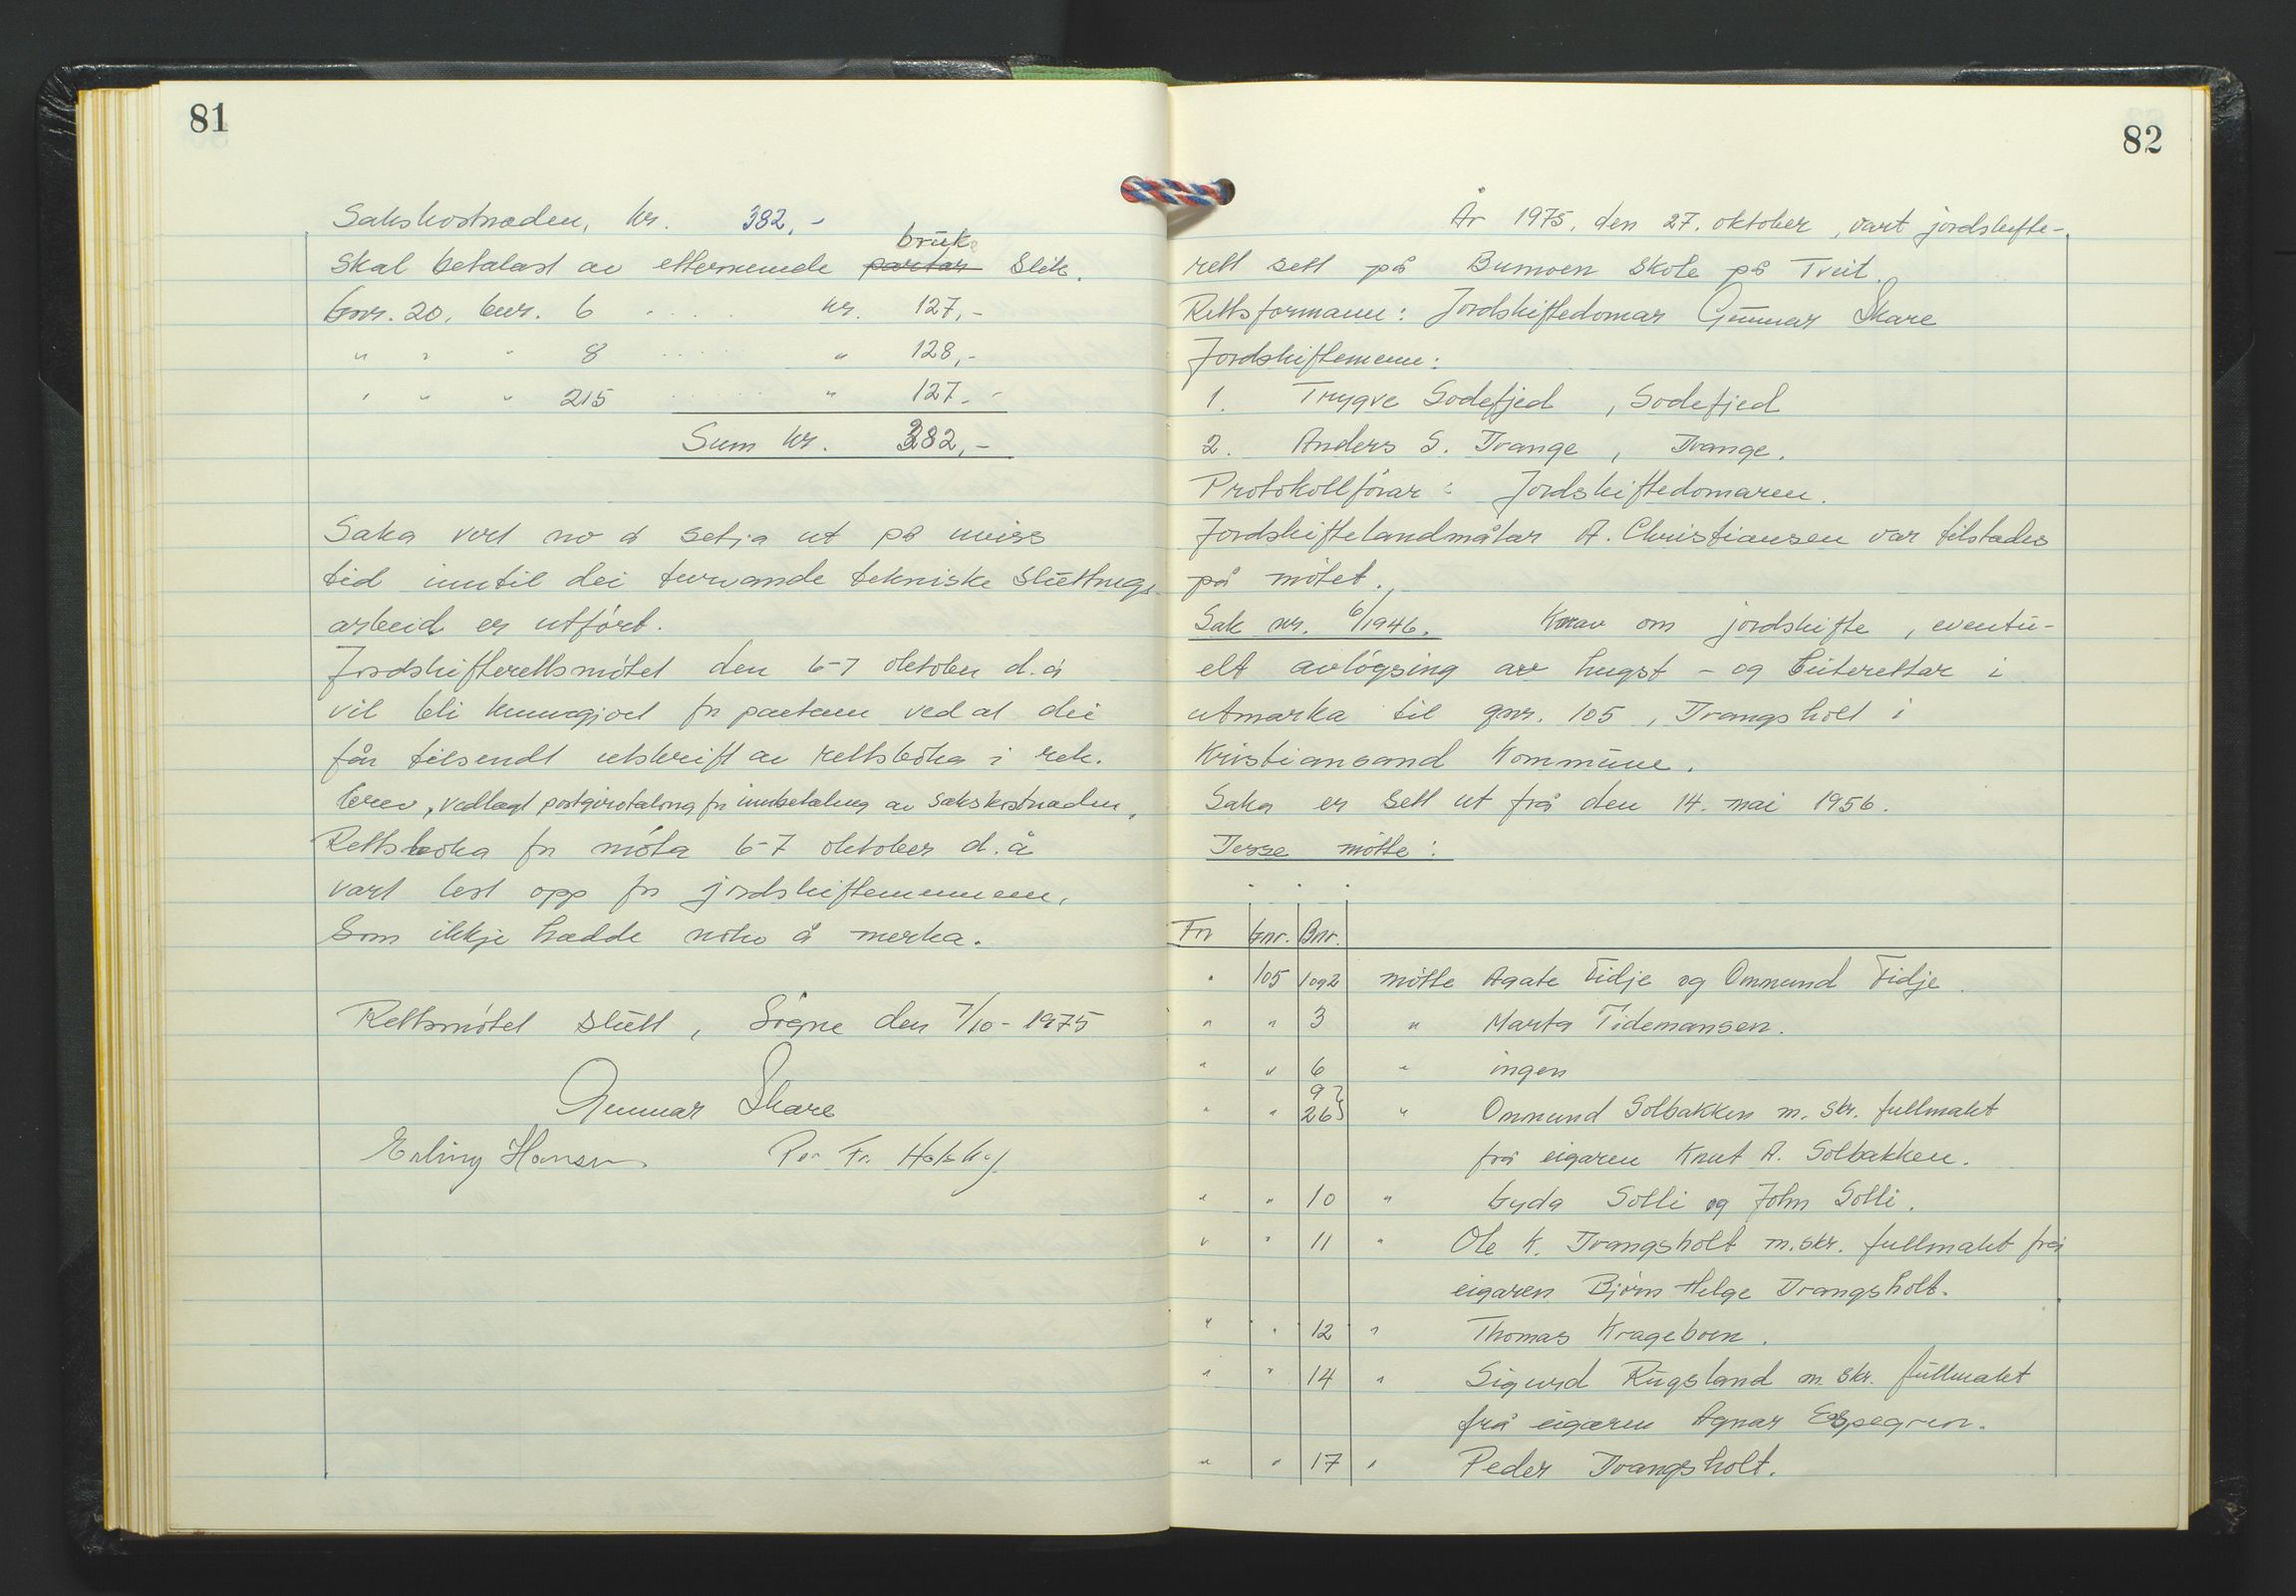 81
Sakskostnaden, kr. 382,-
bruk
skal betalast av etternemnde partar slik.
Gnr. 20, bnr. 6 . . . . kr. 127,-
" " " 8 . . . . . " 128,-
" " " 215 . . . . . " 127.-
Sum kr. 382,-
Saka vert no å setja ut på uviss
tid inntil dei turvande tekniske sluttnings-
arbeid er utført.
Jordskifterettsmötet den 6-7 oktober d.å
vil bli kunngjort for partane ved at dei
får tilsendt utskrift av rettsboka i rek.
brev, vedlagt postgirotalong for innbetaling av sakskostnaden.
Rettsboka for möta 6-7 oktober d.å
vart lest opp for jordskiftemennene,
som ikkje hadde noko å merka.
Rettsmötet slutt, Sögne den 7/10-1975
Gunnar Skare
Erling Hansen Per Fr.
82
År 1975, den 27. oktober, vart jordskifte-
rett sett på Bumoen skole på Tveit.
Rettsformann: Jordskiftedomar Gunnar Skare
Jordskiftemenn:
1. Trygve Sodefjed, Sodefjed
2. Anders S. Drange, Drange.
Protokollförar: Jordskiftedomaren.
Jordskiftelandmålar A. Christiansen var tilstades
på mötet.
Sak nr. 6/1946. Krav om jordskifte, eventu-
elt avlöysing av hugst- og beiterettar i
utmarka til gnr. 105, Drangsholt i
Kristiansand Kommune.
Saka er sett ut frå den 14. mai 1956.
Desse mötte:
For Gnr. Bnr.
" 105 1og2 mötte Agate Tidje og Ommund Tidje.
" " 3 " Marta Tidemansen.
" " 6 " ingen
9}
" " 26} " Ommund Solbakken m. skr. fullmakt
frå eigaren Knut A. Solbakken.
" " 10 " Gyda Solli og John Solli.
" " 11 " Ole K. Drangsholt m.skr. fullmakt frå
eigaren Björn Helge Drangsholt.
" " 12 " Thomas Krageboen.
" " 14 " Sigurd Rugsland m. skr. fullmakt
frå eigaren Agnar Espegren.
" " 17 " Peder Drangsholt.